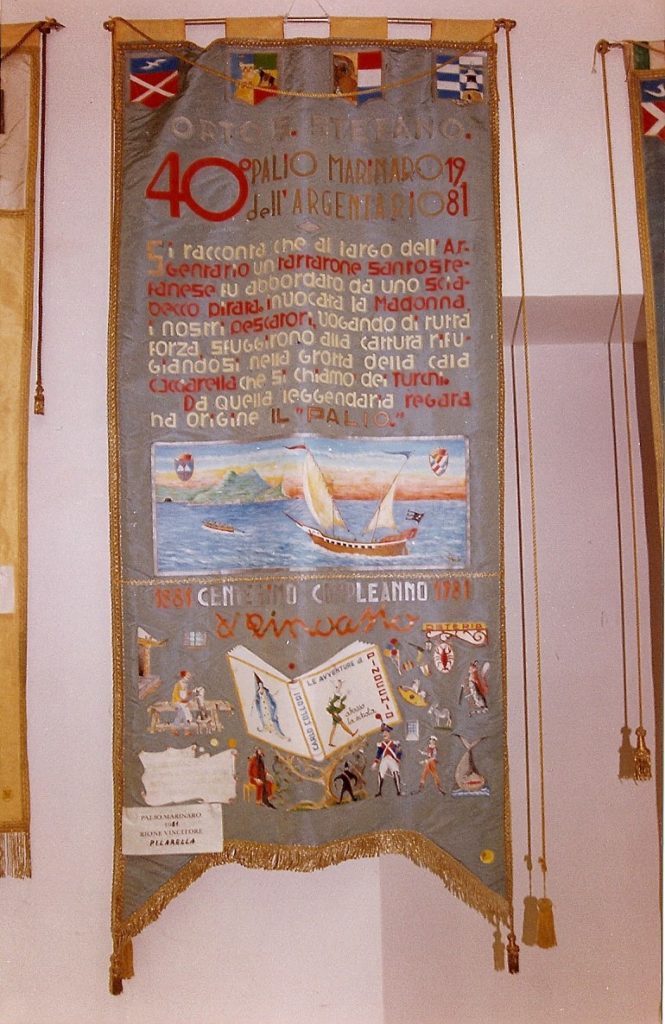 ORTO S. STEFANO.
40° PALIO MARINARO 19
dell'ARGENTARIO 81
Si racconta che al largo dell'Ar-
gentario un tartarone santoste-
fanese fu abbordato da uno scia-
becco pirata. Invocata la Madonna,
i nostri pescatori, vogando di tutta
forza, sfuggirono alla cattura rifu-
giandosi nella grotta della cala
cacciarella che si chiamò dei Turchi.
Da quella leggendaria regata
ha origine IL "PALIO."
1881 CENTESIMO COMPLEANNO 1981
OSTERIA
CARLO COLLODI
LE AVVENTURE di PINOCCHIO
PALIO MARINARO
1981
RIONE VINCITORE
PILARELLA